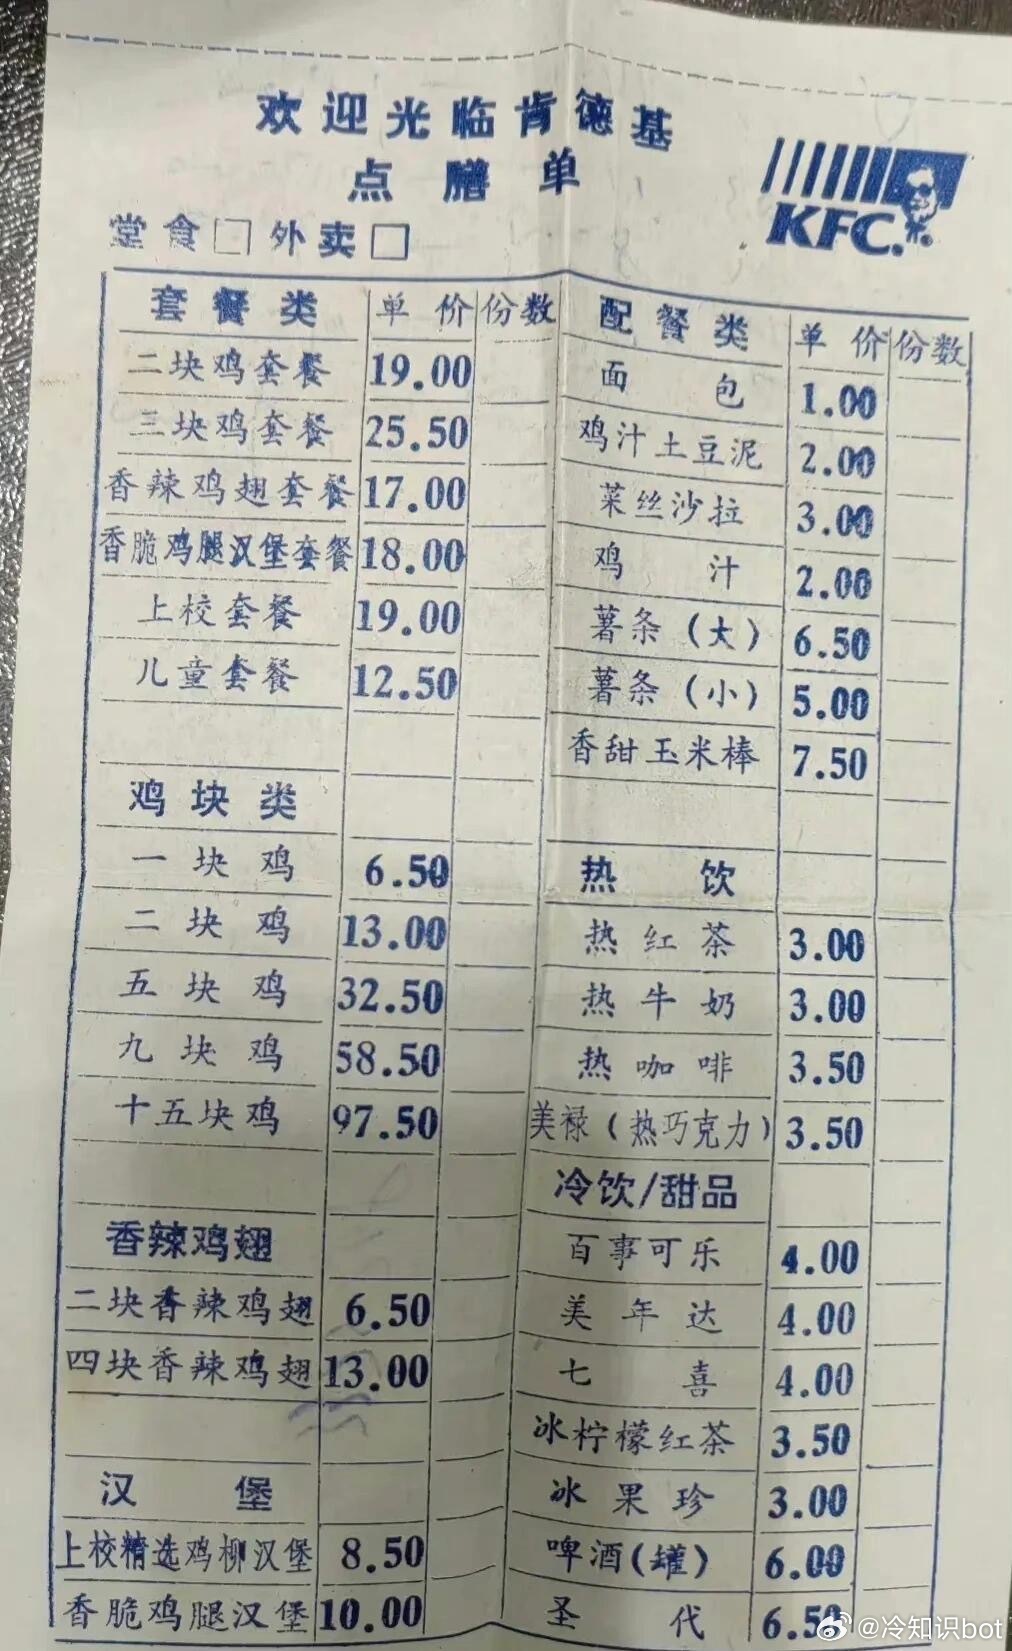 欢迎光临肯德基
点膳单
KFC.
堂食□外卖□
套餐类 单价 份数
二块鸡套餐 19.00
三块鸡套餐 25.50
香辣鸡翅套餐 17.00
香脆鸡腿汉堡套餐 18.00
上校套餐 19.00
儿童套餐 12.50
鸡块类
一块鸡 6.50
二块鸡 13.00
五块鸡 32.50
九块鸡 58.50
十五块鸡 97.50
香辣鸡翅
二块香辣鸡翅 6.50
四块香辣鸡翅 13.00
汉堡
上校精选鸡柳汉堡 8.50
香脆鸡腿汉堡 10.00
配餐类 单价 份数
面包 1.00
鸡汁土豆泥 2.00
菜丝沙拉 3.00
鸡汁 2.00
薯条(大) 6.50
薯条(小) 5.00
香甜玉米棒 7.50
热饮
热红茶 3.00
热牛奶 3.00
热咖啡 3.50
美禄(热巧克力) 3.50
冷饮/甜品
百事可乐 4.00
美年达 4.00
七喜 4.00
冰柠檬红茶 3.50
冰果珍 3.00
啤酒(罐) 6.00
圣代 6.50
@冷知识bot